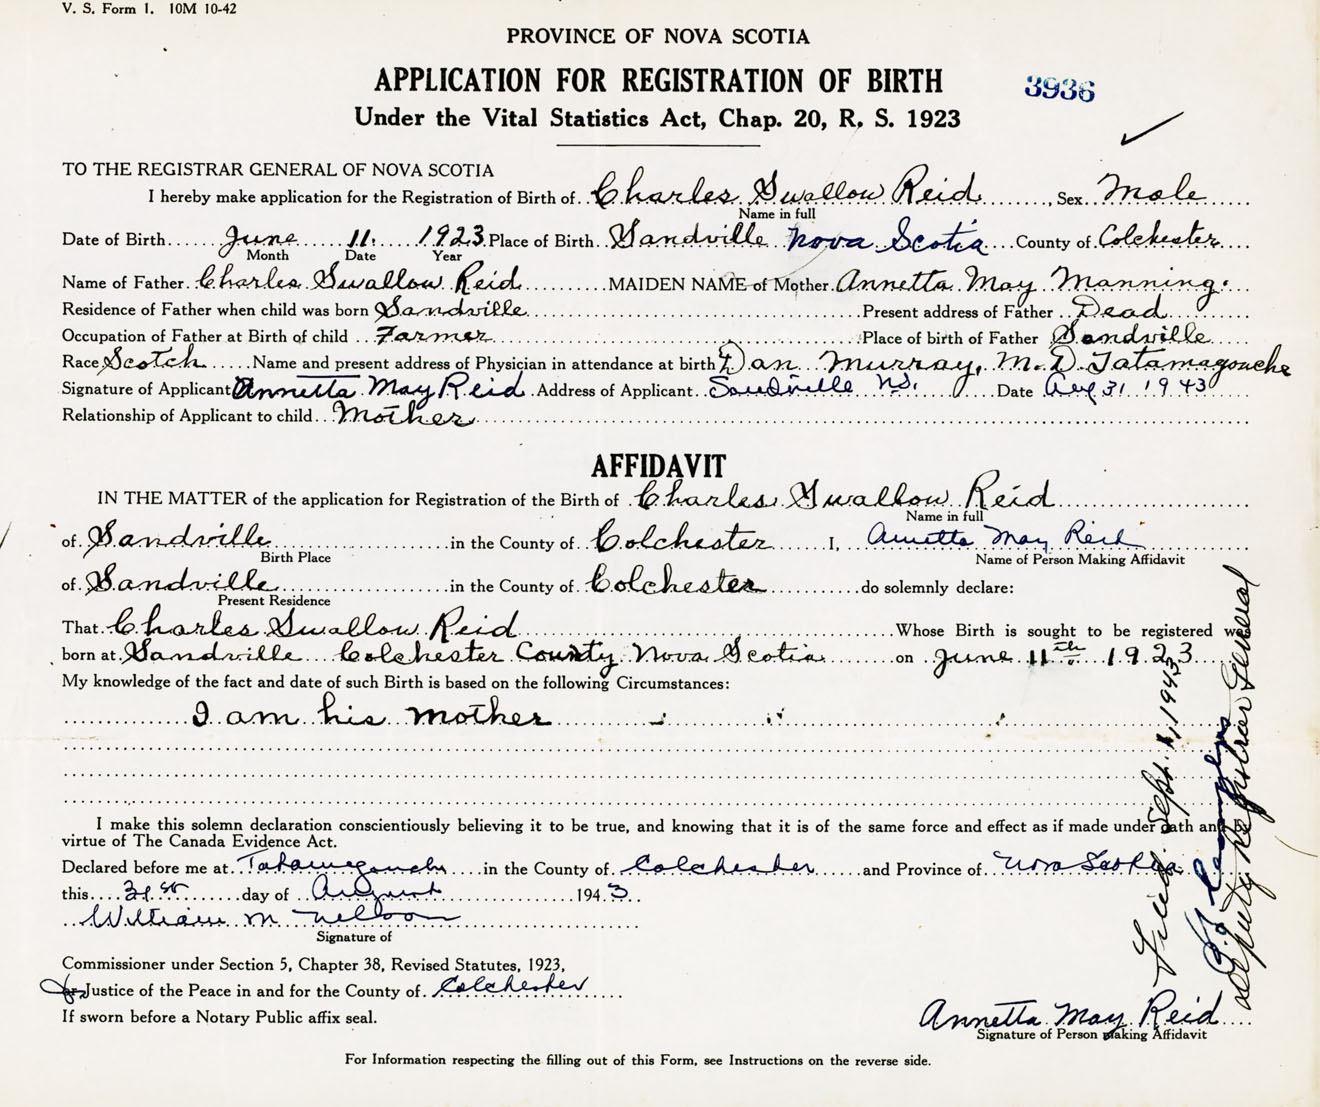 V. S. Form 1. 10M 10-42
PROVINCE OF NOVA SCOTIA
APPLICATION FOR REGISTRATION OF BIRTH
3936
Under the Vital Statistics Act, Chap. 20, R. S. 1923
TO THE REGISTRAR GENERAL OF NOVA SCOTIA
I hereby make application for the Registration of Birth of Charles Swallow Reid, Sex Male
Name in full
Date of Birth June 11. 1923 Place of Birth Sandville Nova Scotia County of Colchester
Month Date Year
Name of Father Charles Swallow Reid MAIDEN NAME of Mother Annetta May Manning.
Residence of Father when child was born Sandville Present address of Father Dead
Occupation of Father at Birth of child Farmer Place of birth of Father Sandville
Race Scotch Name and present address of Physician in attendance at birth Dan Murray, M.D Tatamagouche
Signature of Applicant Annetta May Reid Address of Applicant Sandville N.S. Date Aug 31 1943
Relationship of Applicant to child Mother
AFFIDAVIT
IN THE MATTER of the application for Registration of the Birth of Charles Swallow Reid
Name in full
of Sandville in the County of Colchester I, Annetta May Reid
Birth Place Name of Person Making Affidavit
of Sandville in the County of Colchester do solemnly declare:
Present Residence
That Charles Swallow Reid Whose Birth is sought to be registered was
born at Sandville Colchester County Nova Scotia on June 11th 1923
My knowledge of the fact and date of such Birth is based on the following Circumstances:
I am his mother
I make this solemn declaration conscientiously believing it to be true, and knowing that it is of the same force and effect as if made under oath and
virtue of The Canada Evidence Act.
Declared before me at Tatamagouche in the County of Colchester and Province of Nova Scotia
this 31st day of August 1943
William M Nelson
Signature of
Commissioner under Section 5, Chapter 38, Revised Statutes, 1923,
or Justice of the Peace in and for the County of Colchester
If sworn before a Notary Public affix seal.
Annetta May Reid
Signature of Person making Affidavit
For Information respecting the filling out of this Form, see Instructions on the reverse side.
Filed Sept. 1, 1943
Deputy Registrar General